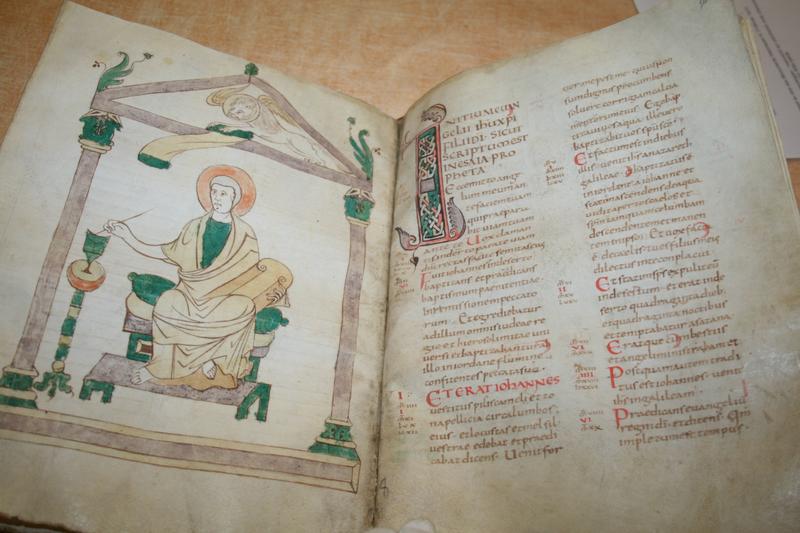 INITIUM EUAN
GELII IHU XPI
FILII DI SICUT
SCRIPTUM EST
IN ESAIA PRO
PHETA
Ecce mitto ang
lum meum an
te faciem tuam
qui praepara
ante te Uox claman
tis in deserto parate uiam
dni rectas facite semitas eius
Fuit iohannes in deserto
baptizans et praedicans
baptismum paenitentiae
in remissionem peccato
rum · Et egrediebatur
ad illum omnis iudeae re
gio et hierosolimitae uni
uersi et baptizabantur ab
illo in iordane flumine
confitentes peccata sua
ET ERAT IOHANNES
uestitus pilis cameli et zo
na pellicia circa lumbos
eius · et locustas et mel sil
uestrae edebat et praedi
cabat dicens · Uenit for
tior me post me · cuius non
sum dignus procumbens
soluere corrigiam calcia
mentorum eius · Ego bap
tizaui uos aqua ille uero
baptizabit uos spu sco
Et factum est in diebus
illis uenit ihs a nazareth
galileae et baptizatus e
in iordane a iohanne et
statim ascendens de aqua
uidit apertos caelos et
spm tamquam columbam
descendentem et manen
tem in ipso · Et uox facta
de caelis tu es filius meus
dilectus in te conplacui
Et statim sps expulit eum
in desertum · et erat in de
serto quadraginta dieb
et quadraginta noctibus
et temptabatur a satana
Eratque cum bestiis
et angeli ministrabant ei
Postquam autem tradi
tus est iohannes · uenit
ihs in galileam
Praedicans euangeliu
regni di · et dicens · Qm
impletum est tempus ·